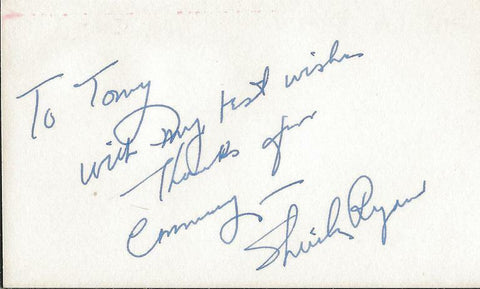 To Tony
with my best wishes
Thanks for
Coming –
Sheila Ryan